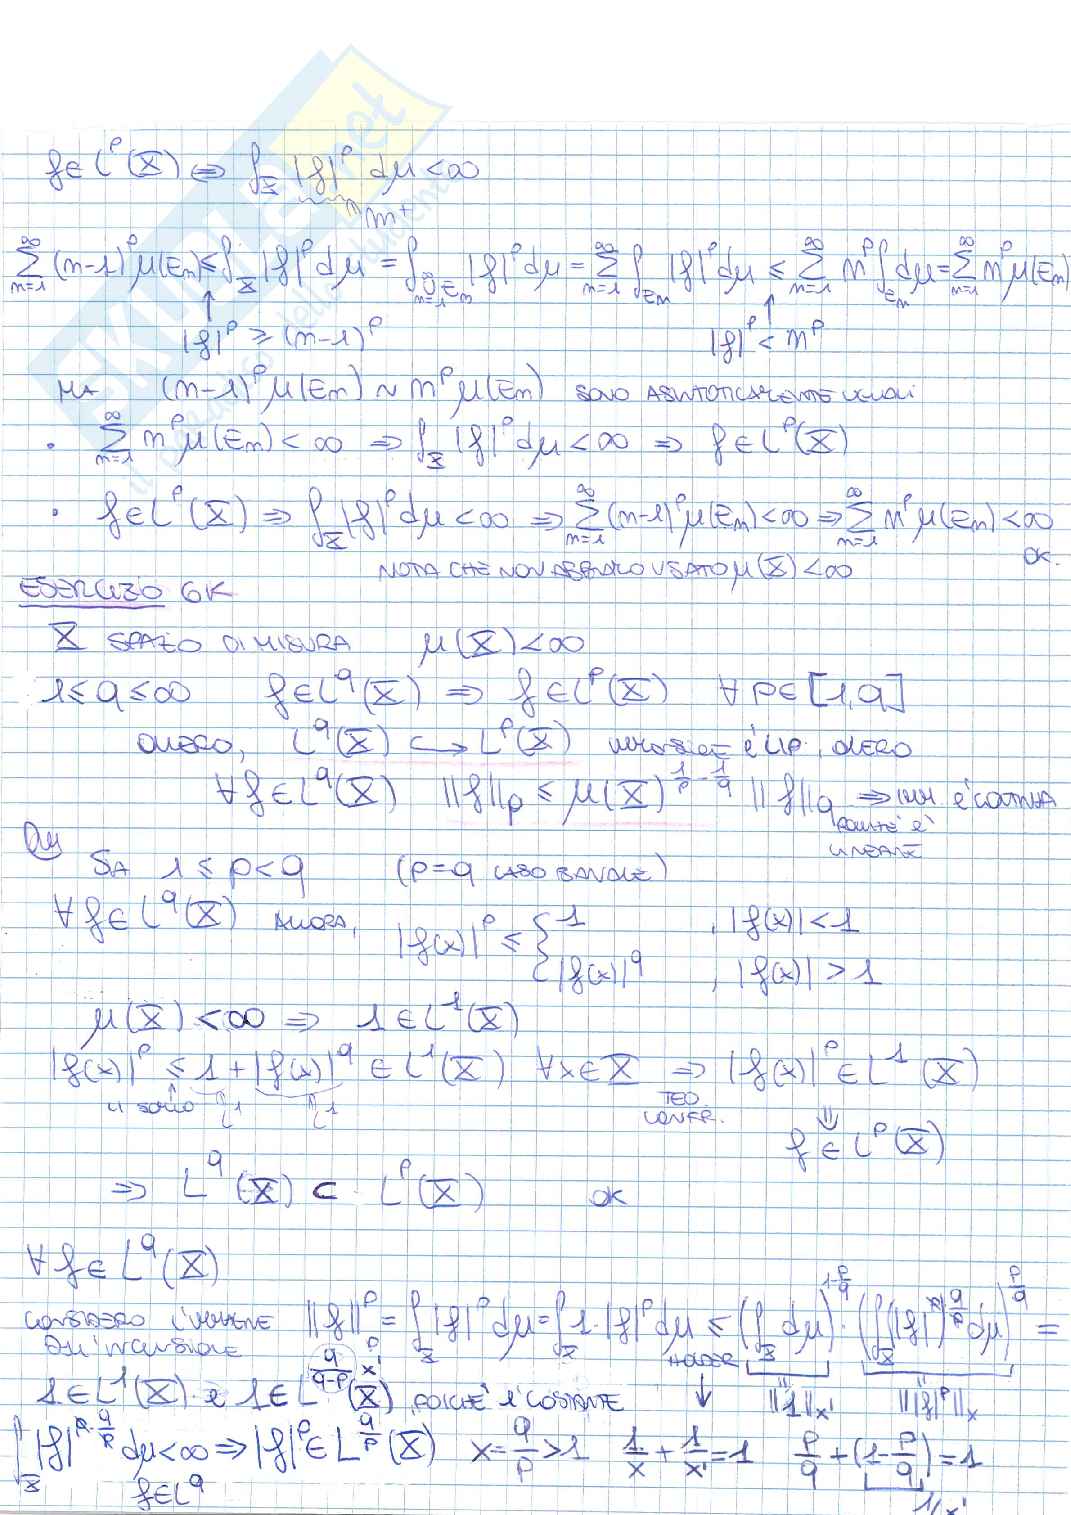 f ∈ L^p(X) ⇔ ∫_X |f|^p dμ < ∞
m^+
∑_{n=1}^∞ (n-1)^p μ(E_n) ≤ ∫_X |f|^p dμ = ∫_{∪_{n=1}^∞ E_n} |f|^p dμ = ∑_{n=1}^∞ ∫_{E_n} |f|^p dμ ≤ ∑_{n=1}^∞ n^p ∫_{E_n} dμ = ∑_{n=1}^∞ n^p μ(E_n)
↑ ↑
|f|^p ≥ (n-1)^p |f|^p < n^p
MA (n-1)^p μ(E_n) ~ n^p μ(E_n) SONO ASINTOTICAMENTE UGUALI
• ∑_{n=1}^∞ n^p μ(E_n) < ∞ ⇒ ∫_X |f|^p dμ < ∞ ⇒ f ∈ L^p(X)
• f ∈ L^p(X) ⇒ ∫_X |f|^p dμ < ∞ ⇒ ∑_{n=1}^∞ (n-1)^p μ(E_n) < ∞ ⇒ ∑_{n=1}^∞ n^p μ(E_n) < ∞
OK.
NOTA CHE NON ABBIAMO USATO μ(X) < ∞
ESERCIZIO 6K
X SPAZIO DI MISURA μ(X) < ∞
1 ≤ q ≤ ∞ f ∈ L^q(X) ⇒ f ∈ L^p(X) ∀ p ∈ [1,q]
OVVERO, L^q(X) ↪ L^p(X) INCLUSIONE È LIP, OVVERO
∀ f ∈ L^q(X) ||f||_p ≤ μ(X)^{1/p - 1/q} ||f||_q ⇒ INCL È CONTINUA
POICHÉ È
LINEARE
Dim
SIA 1 ≤ p < q (p = q CASO BANALE)
∀ f ∈ L^q(X) ALLORA, |f(x)|^p ≤ { 1 , |f(x)| < 1
|f(x)|^q , |f(x)| > 1
μ(X) < ∞ ⇒ 1 ∈ L^1(X)
|f(x)|^p ≤ 1 + |f(x)|^q ∈ L^1(X) ∀ x ∈ X ⇒ |f(x)|^p ∈ L^1(X)
L^1 L^1 TEO. CONFR.
⇓
f ∈ L^p(X)
⇒ L^q(X) ⊂ L^p(X) OK
∀ f ∈ L^q(X)
CONSIDERO ||f||_p^p = ∫_X |f|^p dμ = ∫_X 1·|f|^p dμ ≤ (∫_X dμ)^{1-p/q} · (∫_X (|f|^p)^{q/p} dμ)^{p/q} =
DELL'INCLUSIONE HOLDER
1 ∈ L^1(X) e 1 ∈ L^{q/(q-p)}(X) x' , POICHÉ È COSTANTE ↓ ||1||_{x'} |||f|^p||_x
∫_X |f|^{p·q/p} dμ < ∞ ⇒ |f|^p ∈ L^{q/p}(X) x = q/p > 1 1/x + 1/x' = 1 p/q + (1 - p/q) = 1
f ∈ L^q 1/x'